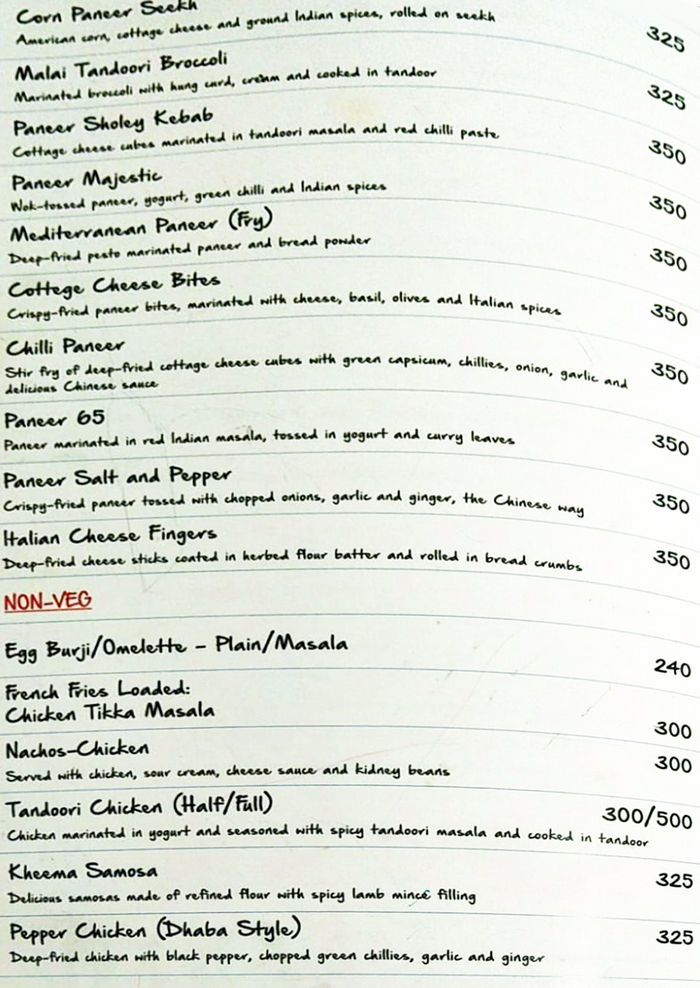 Corn Paneer Seekh
American corn, cottage cheese and ground Indian spices, rolled on seekh 325
Malai Tandoori Broccoli
Marinated broccoli with hung curd, cream and cooked in tandoor 325
Paneer Sholey Kebab
Cottage cheese cubes marinated in tandoori masala and red chilli paste 350
Paneer Majestic
Wok-tossed paneer, yogurt, green chilli and Indian spices 350
Mediterranean Paneer (Fry)
Deep-fried pesto marinated paneer and bread powder 350
Cottege Cheese Bites
Crispy-fried paneer bites, marinated with cheese, basil, olives and Italian spices 350
Chilli Paneer
Stir fry of deep-fried cottage cheese cubes with green capsicum, chillies, onion, garlic and 350
delicious Chinese sauce
Paneer 65
Paneer marinated in red Indian masala, tossed in yogurt and curry leaves 350
Paneer Salt and Pepper
Crispy-fried paneer tossed with chopped onions, garlic and ginger, the Chinese way 350
Italian Cheese Fingers
Deep-fried cheese sticks coated in herbed flour batter and rolled in bread crumbs 350
NON-VEG
Egg Burji/Omelette - Plain/Masala 240
French Fries Loaded:
Chicken Tikka Masala 300
Nachos-Chicken 300
Served with chicken, sour cream, cheese sauce and kidney beans
Tandoori Chicken (Half/Full) 300/500
Chicken marinated in yogurt and seasoned with spicy tandoori masala and cooked in tandoor
Kheema Samosa 325
Delicious samosas made of refined flour with spicy lamb mince filling
Pepper Chicken (Dhaba Style) 325
Deep-fried chicken with black pepper, chopped green chillies, garlic and ginger